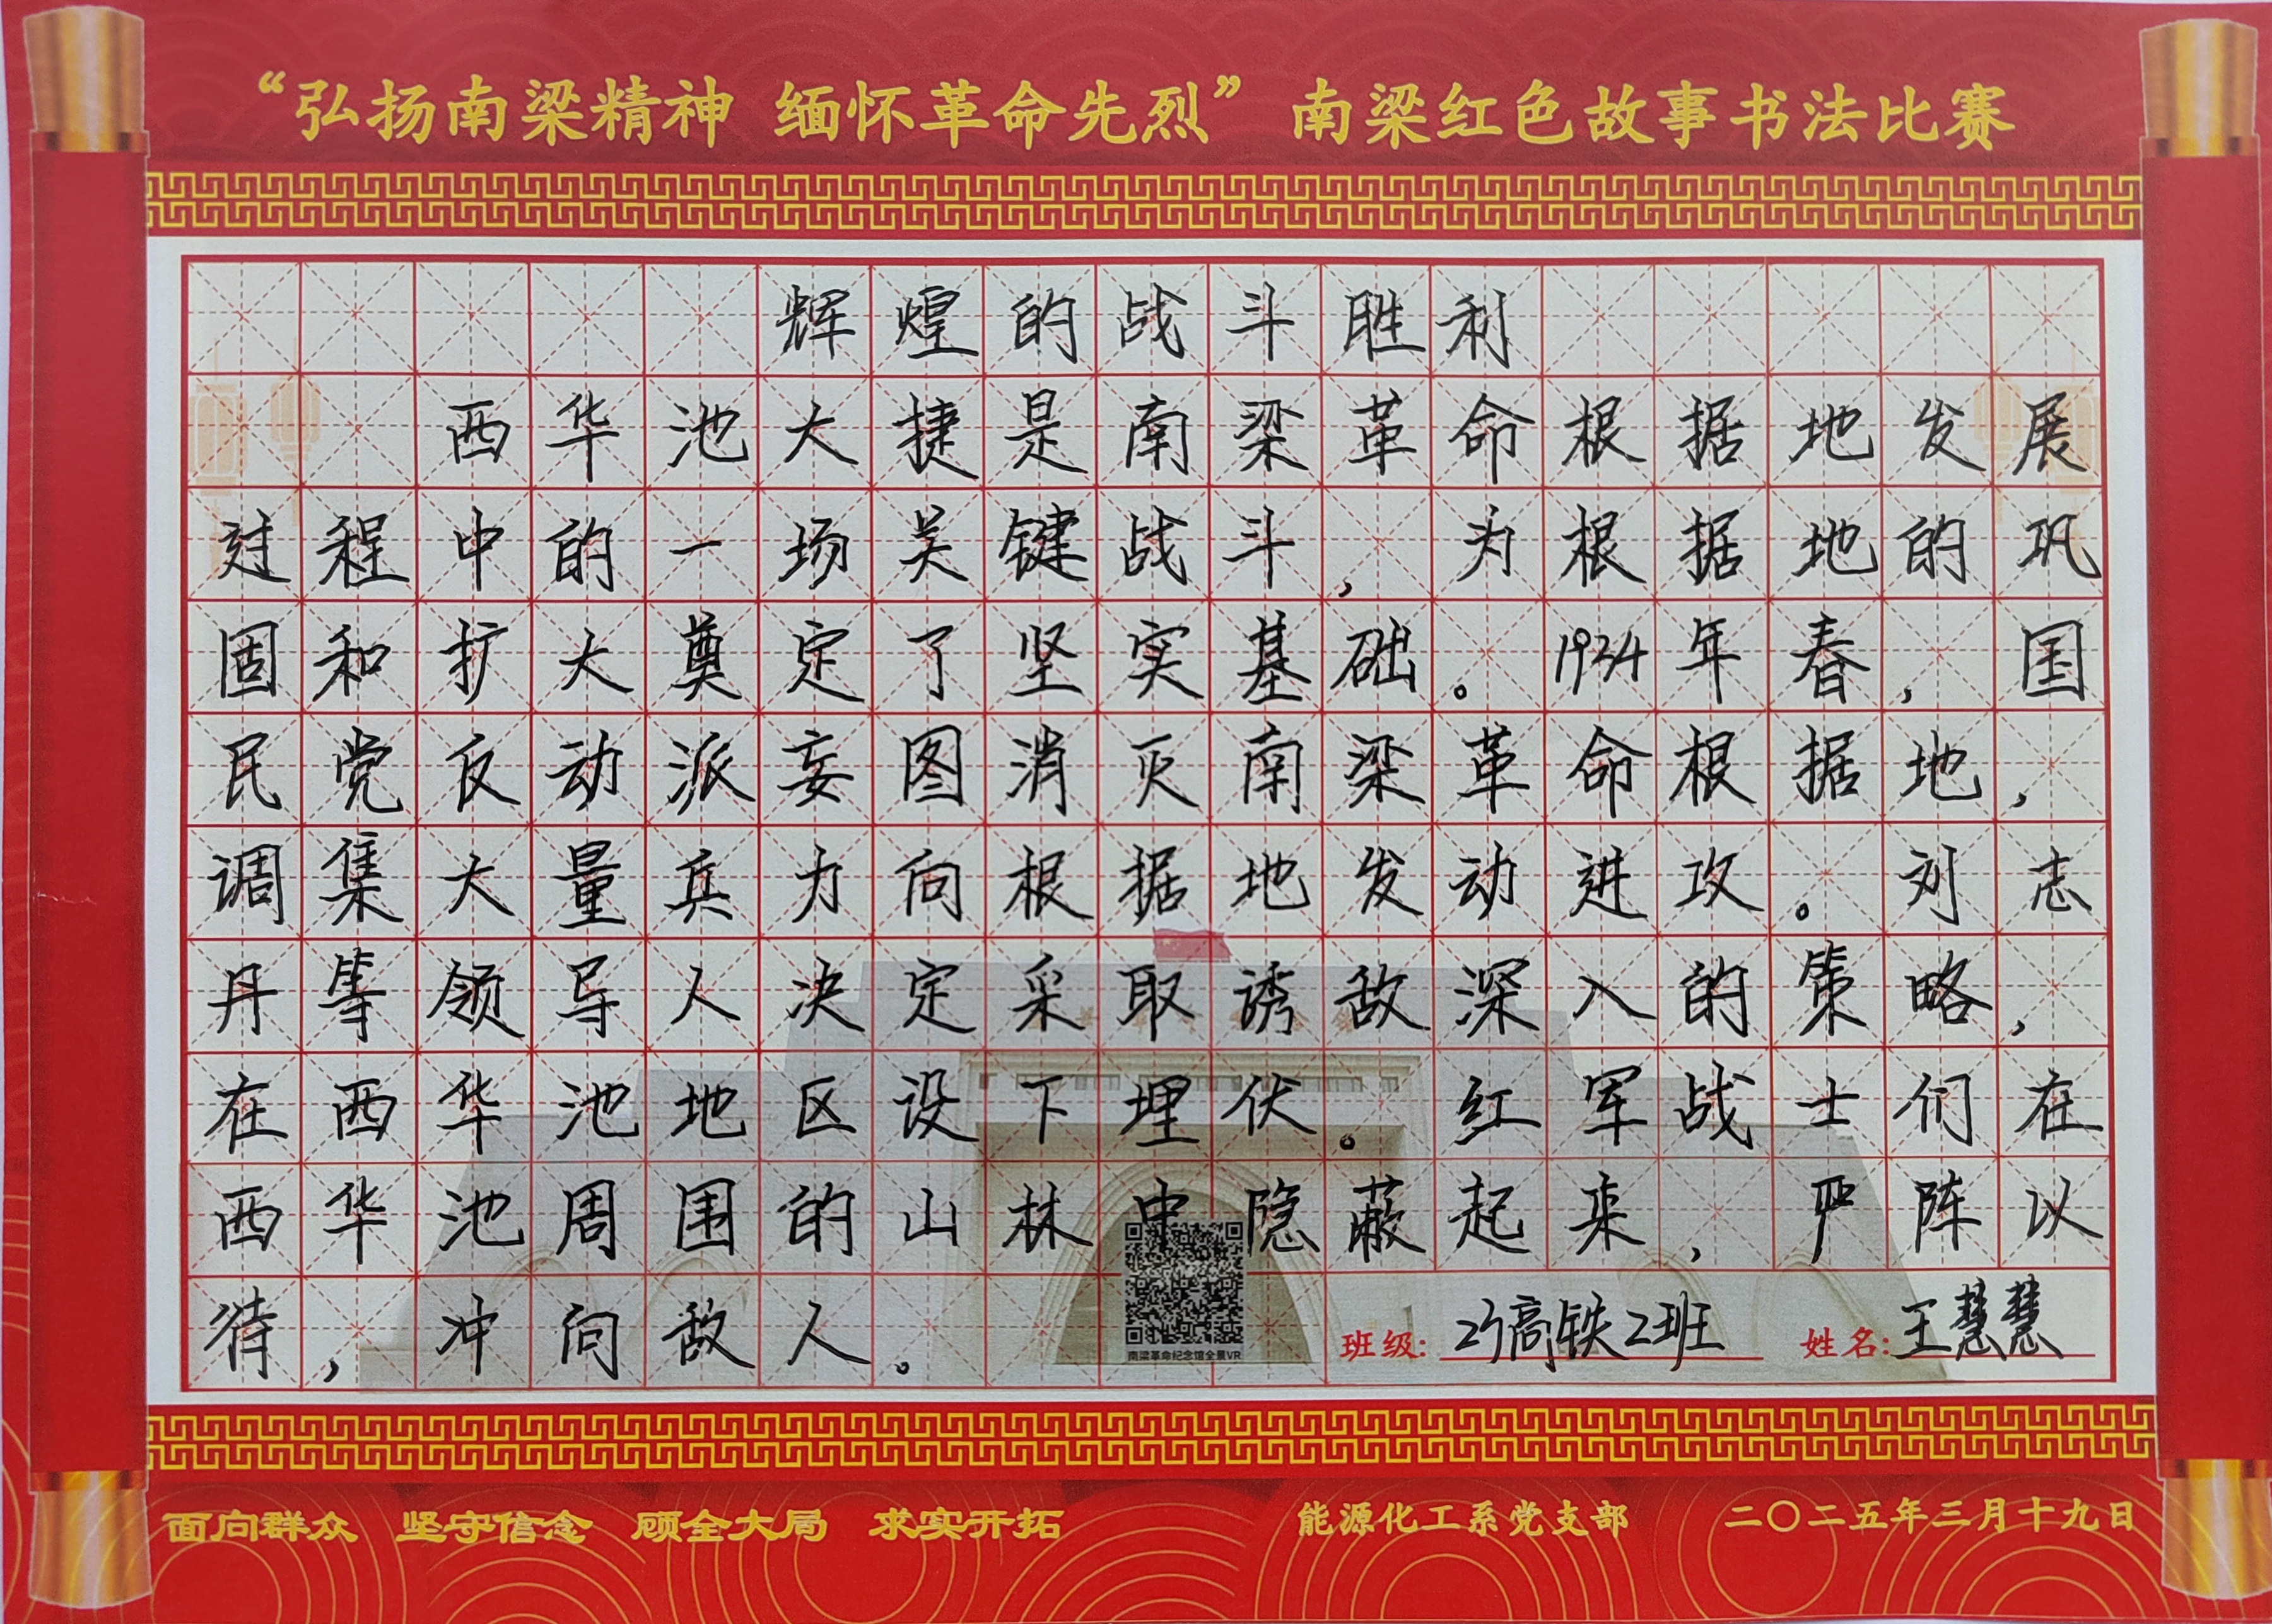 “弘扬南梁精神 缅怀革命先烈” 南梁红色故事书法比赛
辉煌的战斗胜利
西华池大捷是南梁革命根据地发展
过程中的一场关键战斗，为根据地的巩
固和扩大奠定了坚实基础。1934年春，国
民党反动派妄图消灭南梁革命根据地，
调集大量兵力向根据地发动进攻。刘志
丹等领导人决定采取诱敌深入的策略，
在西华池地区设下埋伏。红军战士们在
西华池周围的山林中隐蔽起来，严阵以
待，冲向敌人。
南梁革命纪念馆全景VR
班级: 23高铁2班 姓名: 王慧慧
面向群众 坚守信念 顾全大局 求实开拓 能源化工系党支部 二〇二五年三月十九日